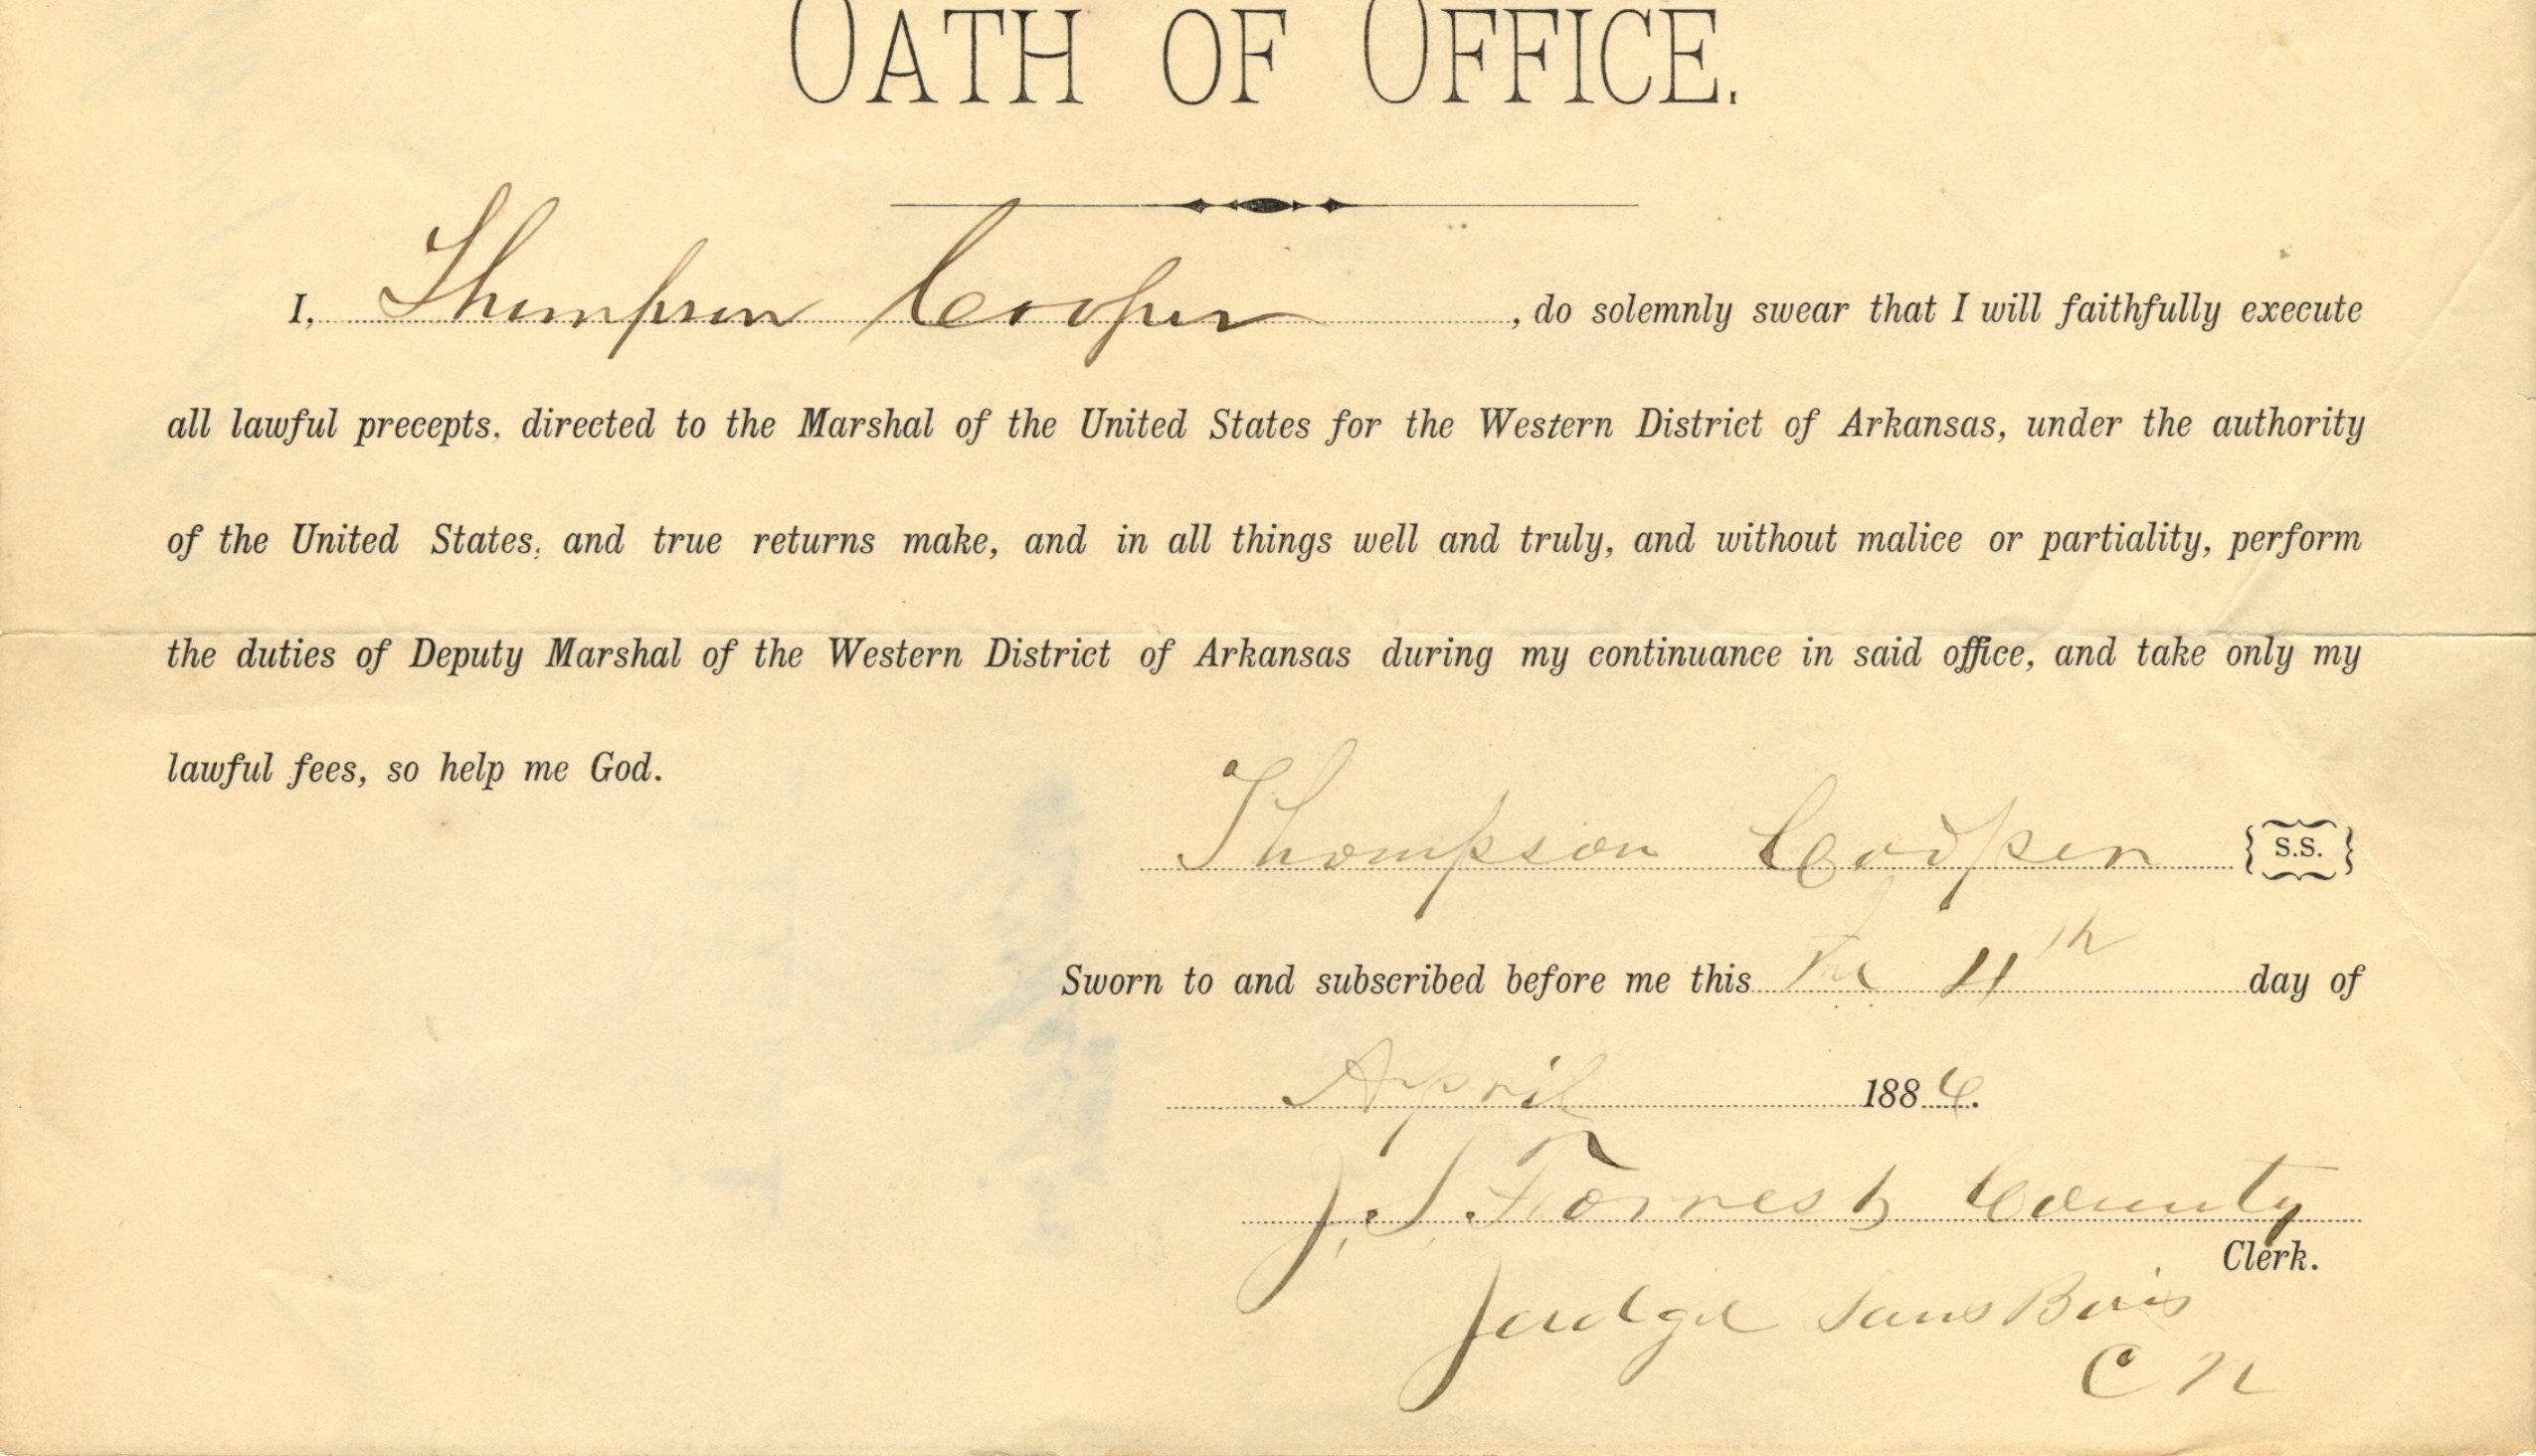 OATH OF OFFICE.
I, Thompson Cooper, do solemnly swear that I will faithfully execute
all lawful precepts, directed to the Marshal of the United States for the Western District of Arkansas, under the authority
of the United States, and true returns make, and in all things well and truly, and without malice or partiality, perform
the duties of Deputy Marshal of the Western District of Arkansas during my continuance in said office, and take only my
lawful fees, so help me God.
Thompson Cooper {S.S.}
Sworn to and subscribed before me this the 4th day of
April 1886.
J. S. Forrest County
Clerk.
Judge Sans Bois
C N